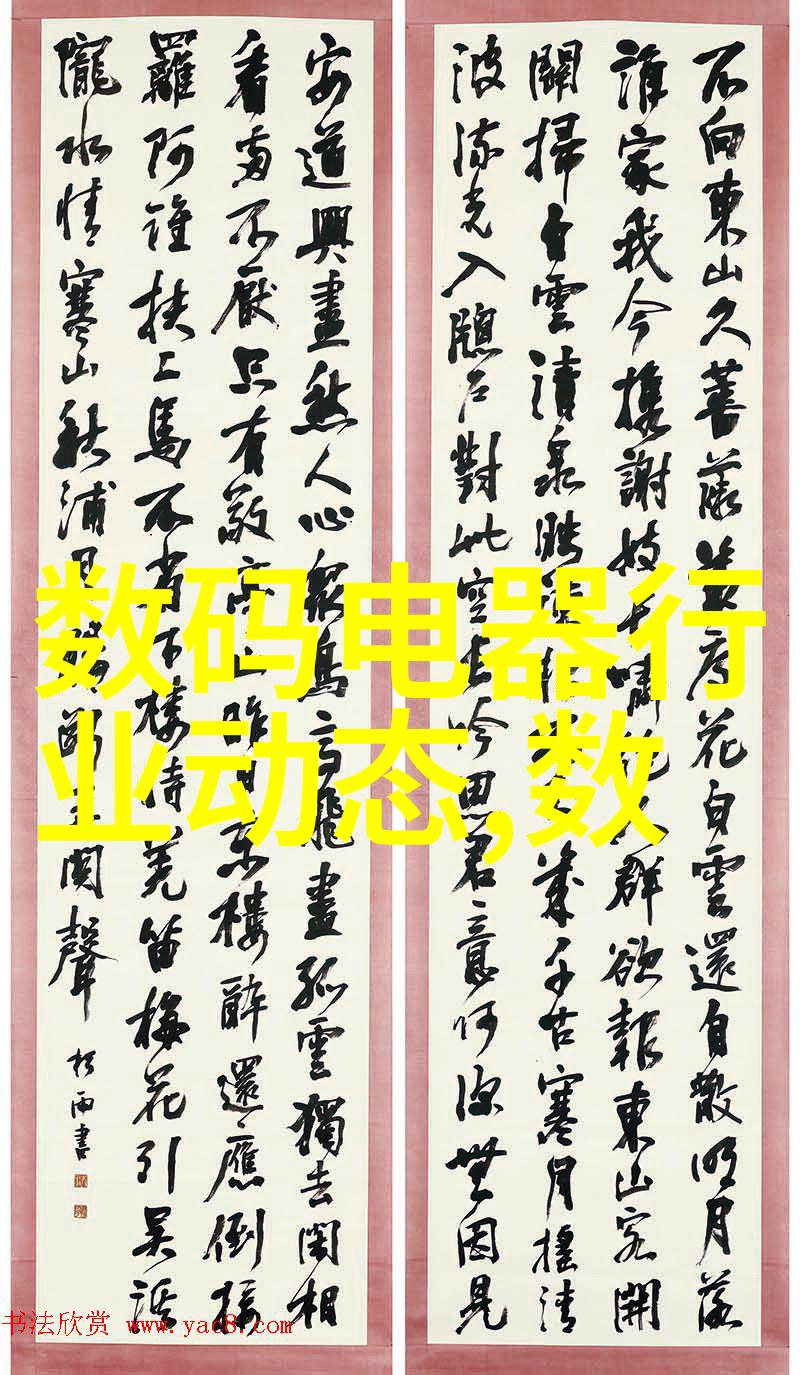 不向東山久薔薇幾度花白雲還自散明月落
誰家我今攜謝妓長嘯絕人群欲報東山客開
關掃白雲讀泉映疏松不知幾千古寒月搖清
波流光入牕戶對此空長吟思君意何深無因見
安道興盡愁人心眾鳥高飛盡孤雲獨去閑相
看兩不厭只有敬亭山昨日東樓醉還應倒接
羅阿誰扶上馬不省下樓時羌笛梅花引吳溪
隴水情寒山秋浦月腸斷玉關聲
松雨書
数码电器行
业动态,数
书法欣赏 www.yac8.com